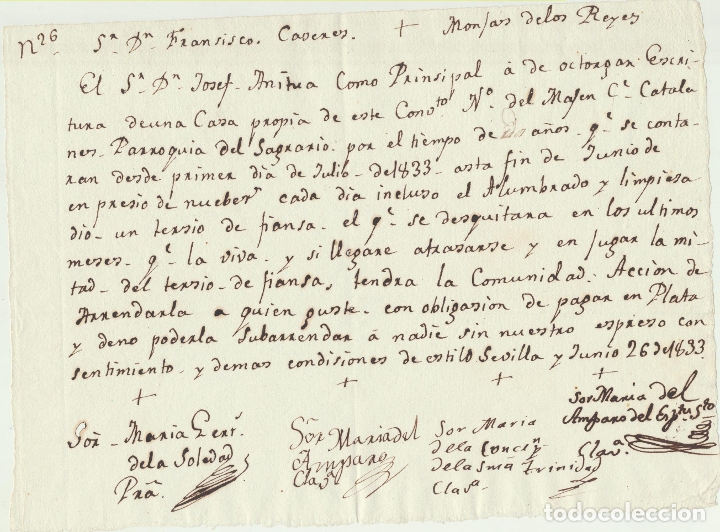 nº26 Sr. Dn. Fransisco. Caseres. + Monjas de los Reyes
El Sr. Dn. Josef- Anitua Como Prinsipal á de octorgar Escri-
tura de una Casa propia de este Convto Nº del Masen Ce. Catala
nes- Parroquia del Sagrario. por el tiempo de años- qe. se conta-
ran desde primer dia de Julio- de 1833- asta fin de Junio de
en presio de nueber cada dia incluso el Alumbrado y limpiesa
dio- un tersio de fiansa- el qe. se desquitara en los ultimos
meses- qe. la viva- y si llegare atrasarse y en jugar la mi-
tad- del tersio- de fiansa, tendra la Comunidad. Accion de
Arrendarla a quien guste- con obligasion de pagar en Plata
y de no poderla Subarrendar á nadie sin nuestro espreso con
sentimiento- y demas condisiones de estilo Sevilla y Junio 26 de 1833
+ + + +
Sor- Maria Gert.
de la Soledad
Pra.
Sor Maria del
Amparo
Clasa
Sor Maria
de la Concepn
de la Sma Trinidad
Clasa.
Sor Maria del
Amparo del Espiritu Sto
Clasa.
todocoleccion